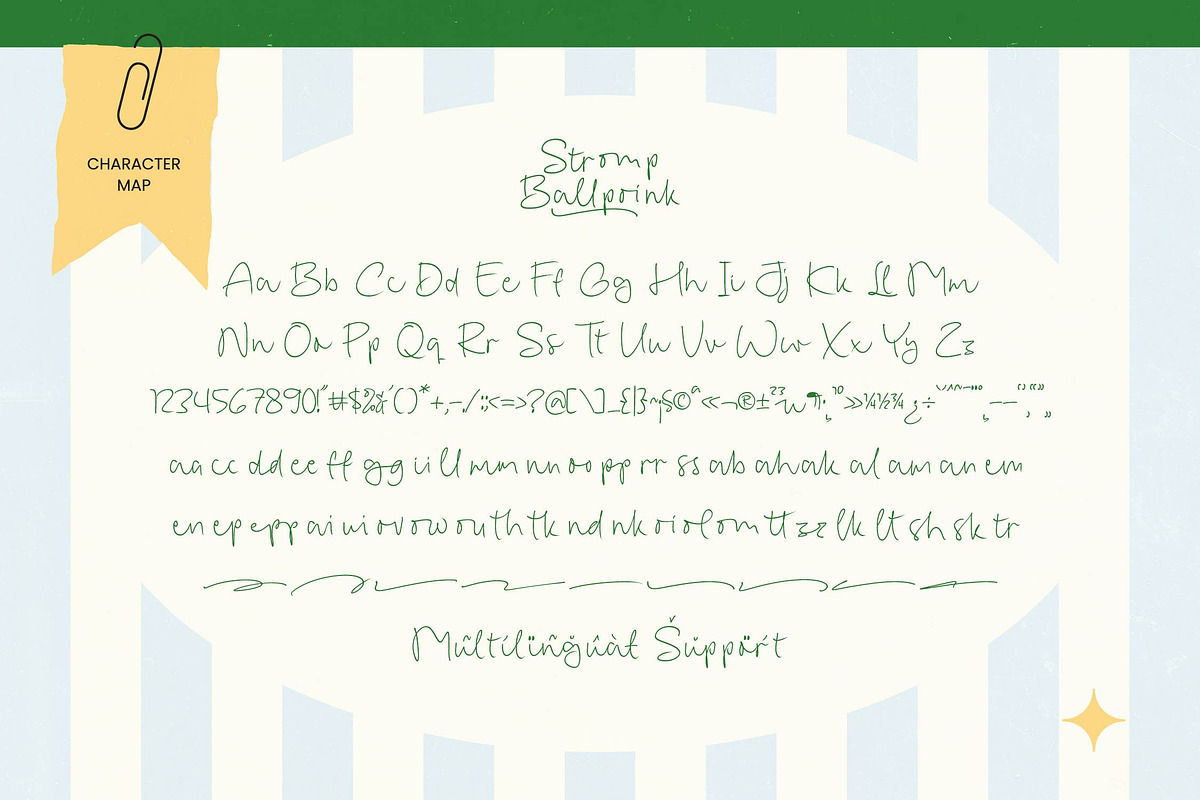 CHARACTER
MAP
Stromp
Ballpoink
Aa Bb Cc Dd Ee Ff Gg Hh Ii Jj Kk Ll Mm
Nn Oo Pp Qq Rr Ss Tt Uu Vv Ww Xx Yy Zz
1234567890!"#$%&'()*+,-./:;<=>?@[\]_{|}~¡§©ª«¬®±²³µ¶·¸¹º»¼½¾¿÷
aa cc dd ee ff gg ii ll mm nn oo pp rr ss ab ah ak al am an em
en ep epp ai ui or ov ow ou th tk nd nk oi ol om tt zz lk lt sh sk tr
Múltílïñĝúàł Šúppäŕt